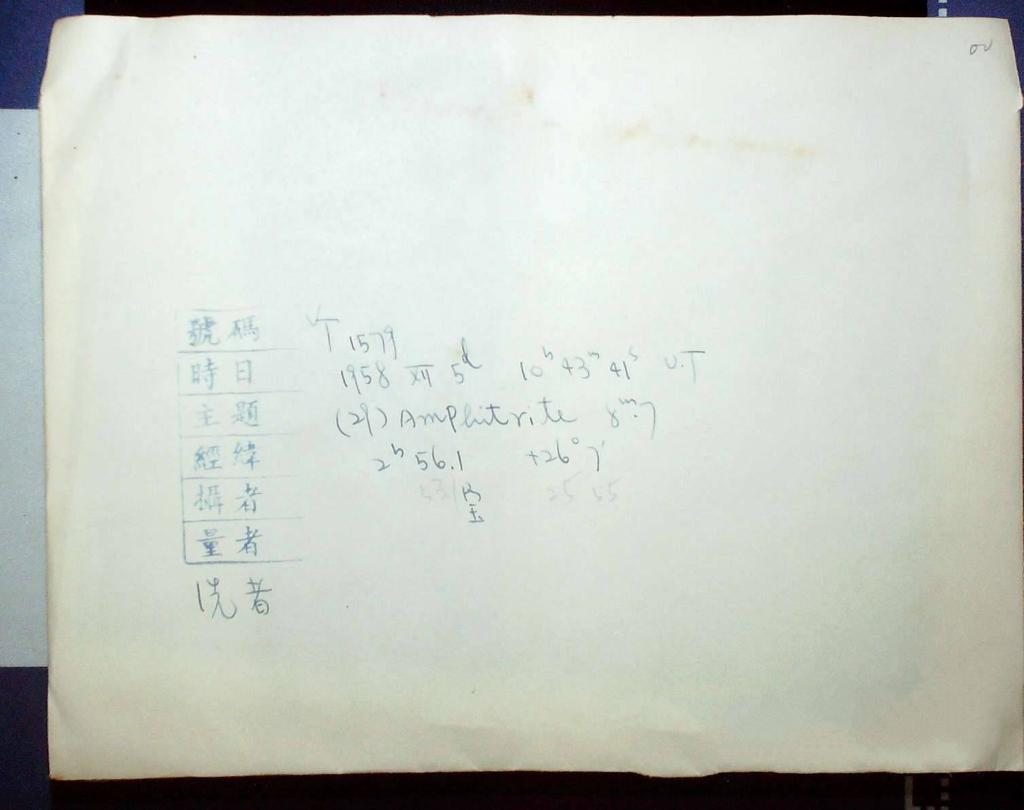 號碼 T 1579
時日 1958 XII 5d 10h 43m 41s U.T
主題 (29) Amphitrite 8m.7
經緯 2h 56.1 +26° 7'
攝者
25 55
量者
洗者